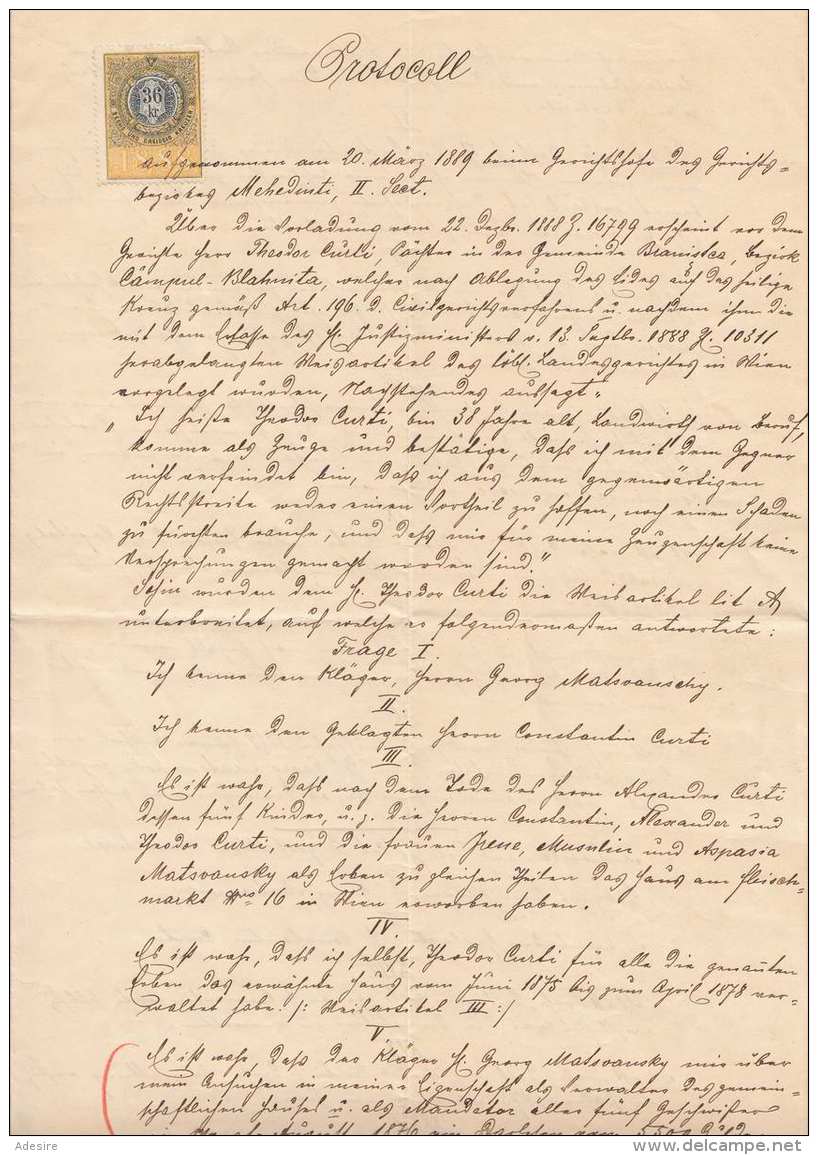 Protocoll
36
kr
aufgenommen am 20. März 1889 beim Gerichtshofe des Gerichts-
bezirkes Mehedinti, II. Sect.
Über die Vorladung vom 22. Dezbr. 1888 Z. 16799 erscheint vor dem
Gerichte Herr Theodor Curti, Pächter in der Gemeinde Branistea, Bezirk
Câmpul-Blahnita, welcher nach Ablegung des Eides auf das heilige
Kreuz gemäß Art. 196 d. Civilgerichtsverfahrens u. nachdem ihm die
mit dem Erlasse des H. Justizministers v. 13. Septbr. 1888 Z. 10311
herabgelangten Weisartikel des löbl. Landesgerichtes in Wien
vorgelegt wurden, Nachstehendes aussagt:
„Ich heiße Theodor Curti, bin 38 Jahre alt, Landwirth von Beruf,
komme als Zeuge und bestätige, daß ich mit dem Gegner
nicht verfeindet bin, daß ich aus dem gegenwärtigen
Rechtsstreite weder einen Vortheil zu hoffen, noch einen Schaden
zu fürchten brauche, und daß mir für meine Zeugenschaft keine
Versprechungen gemacht worden sind."
Sohin wurden dem H. Theodor Curti die Weisartikel lit A
unterbreitet, auf welche er folgendermaßen antwortete:
Frage I.
Ich kenne den Kläger, Herrn Georg Matsvanschy.
II.
Ich kenne den Geklagten Herrn Constantin Curti
III.
Es ist wahr, daß nach dem Tode des Herrn Alexander Curti
dessen fünf Kinder, u. z. die Herren Constantin, Alexander und
Theodor Curti, und die Frauen Irene, Musulin und Aspasia
Matsvansky als Erben zu gleichen Theilen das Haus am Fleisch-
markt Nro 16 in Wien erworben haben.
IV.
Es ist wahr, daß ich selbst, Theodor Curti für alle die genannten
Erben das erwähnte Haus vom Juni 1875 bis zum April 1878 ver-
waltet habe. /: Weisartikel III :/
V.
Es ist wahr, daß der Kläger H. Georg Matsvansky mir über
mein Ansuchen in meiner Eigenschaft als Verwalter des gemein-
schaftlichen Hauses u. als Mandatar aller fünf Geschwister
August 1876 ein Darlehen von 5500
Adesire
delcampe.net